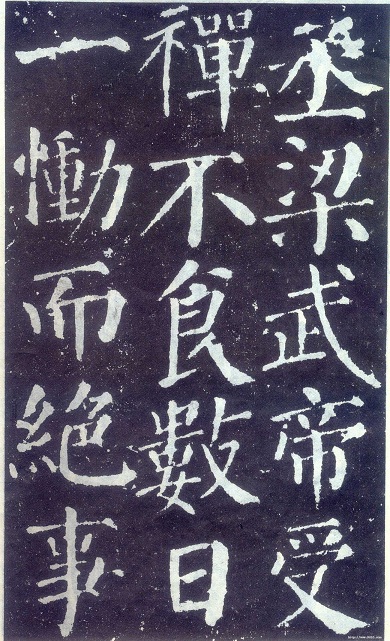 丞梁武帝受
禪不食數日
一慟而絕事